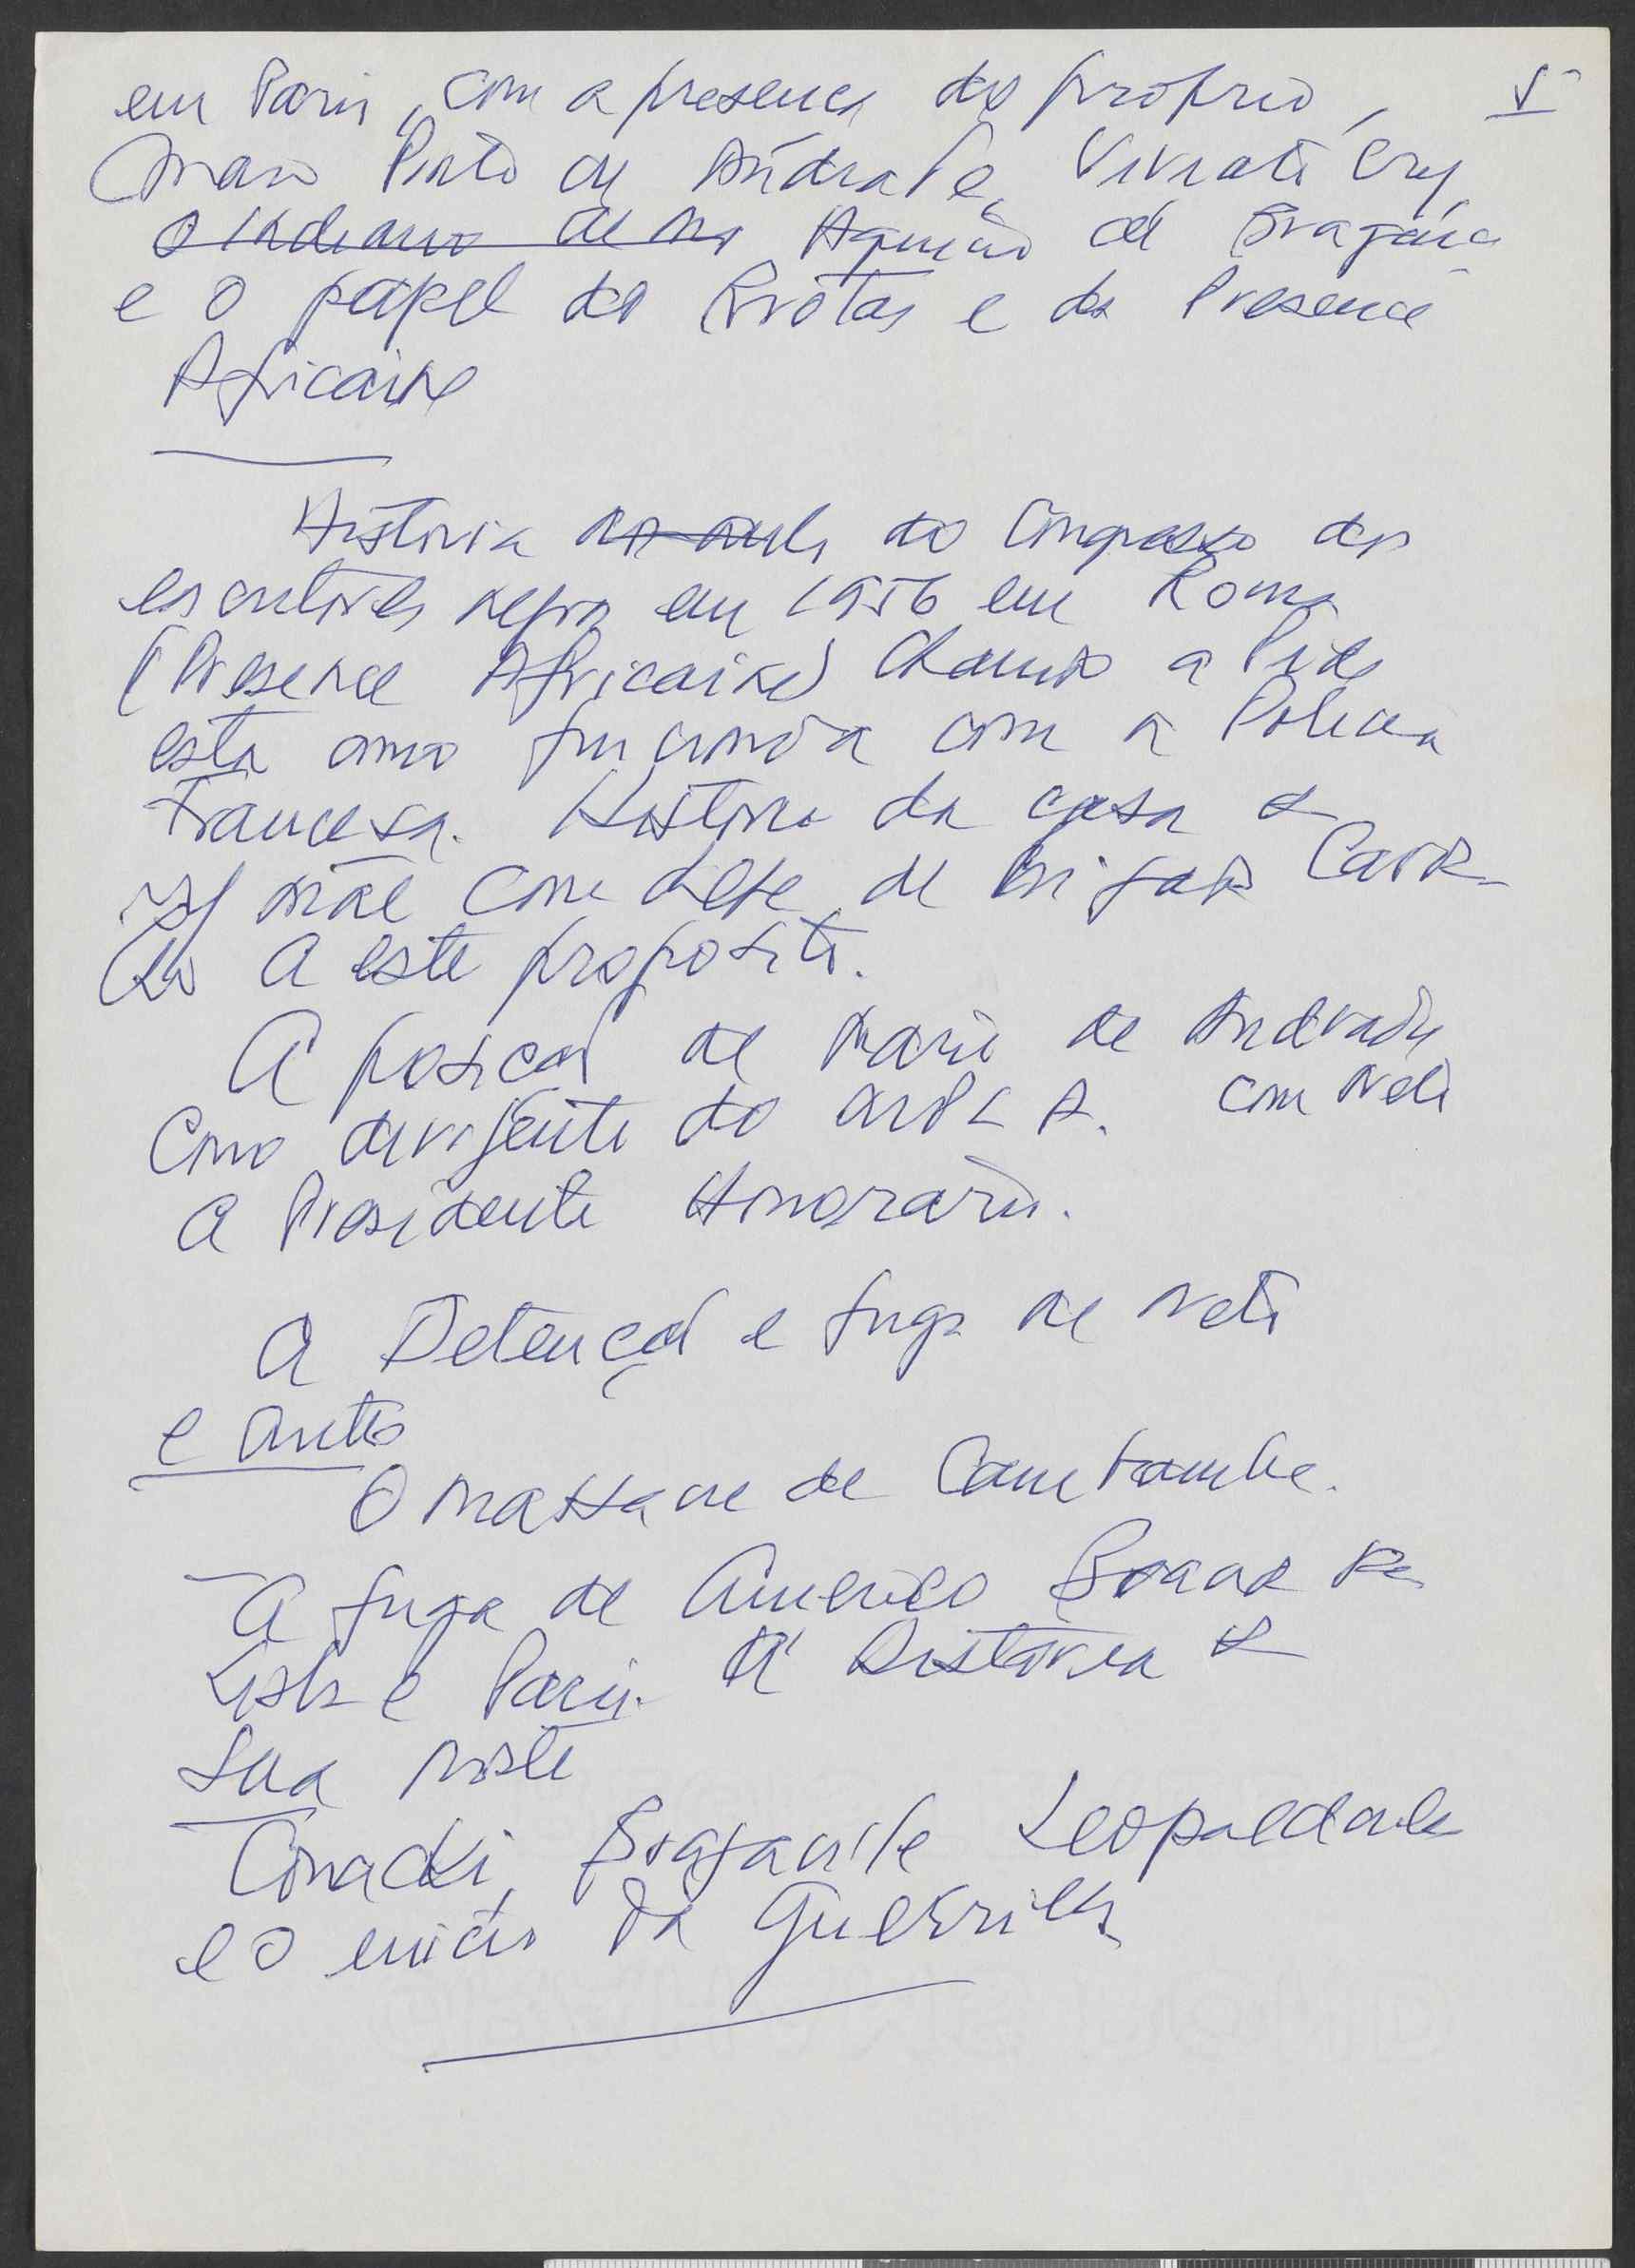 em Paris, com a presença do proprio, 5
Mario Pinto de Andrade, Viriato Cruz
o indiano de no Aquino de Bragança
e o papel do e da Presence
Africaine
Historia do Congresso dos
escritores negros em 1956 em Roma
(Presence Africaine) Chamo a Pide
esta como funciona com a Policia
Francesa. Historia da casa e
mãe com de
a este proposito.
A posição de Mario de Andrade
como dirigente do MPLA. com Neto
a Presidente Honorario.
A Detenção e fuga de Neto
e outros
O massacre de Cambambe.
A fuga de Americo Boavida
Lisboa e Paris. A Historia e
sua morte
Conacki, Brazaville Leopoldville
e o inicio da Guerrilha